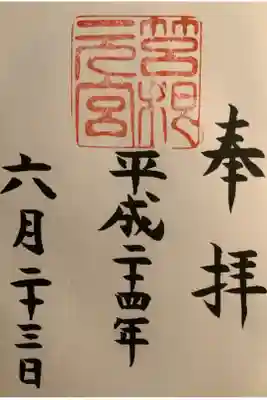 奉拝
筥根
元宮
平成二十四年
六月二十三日